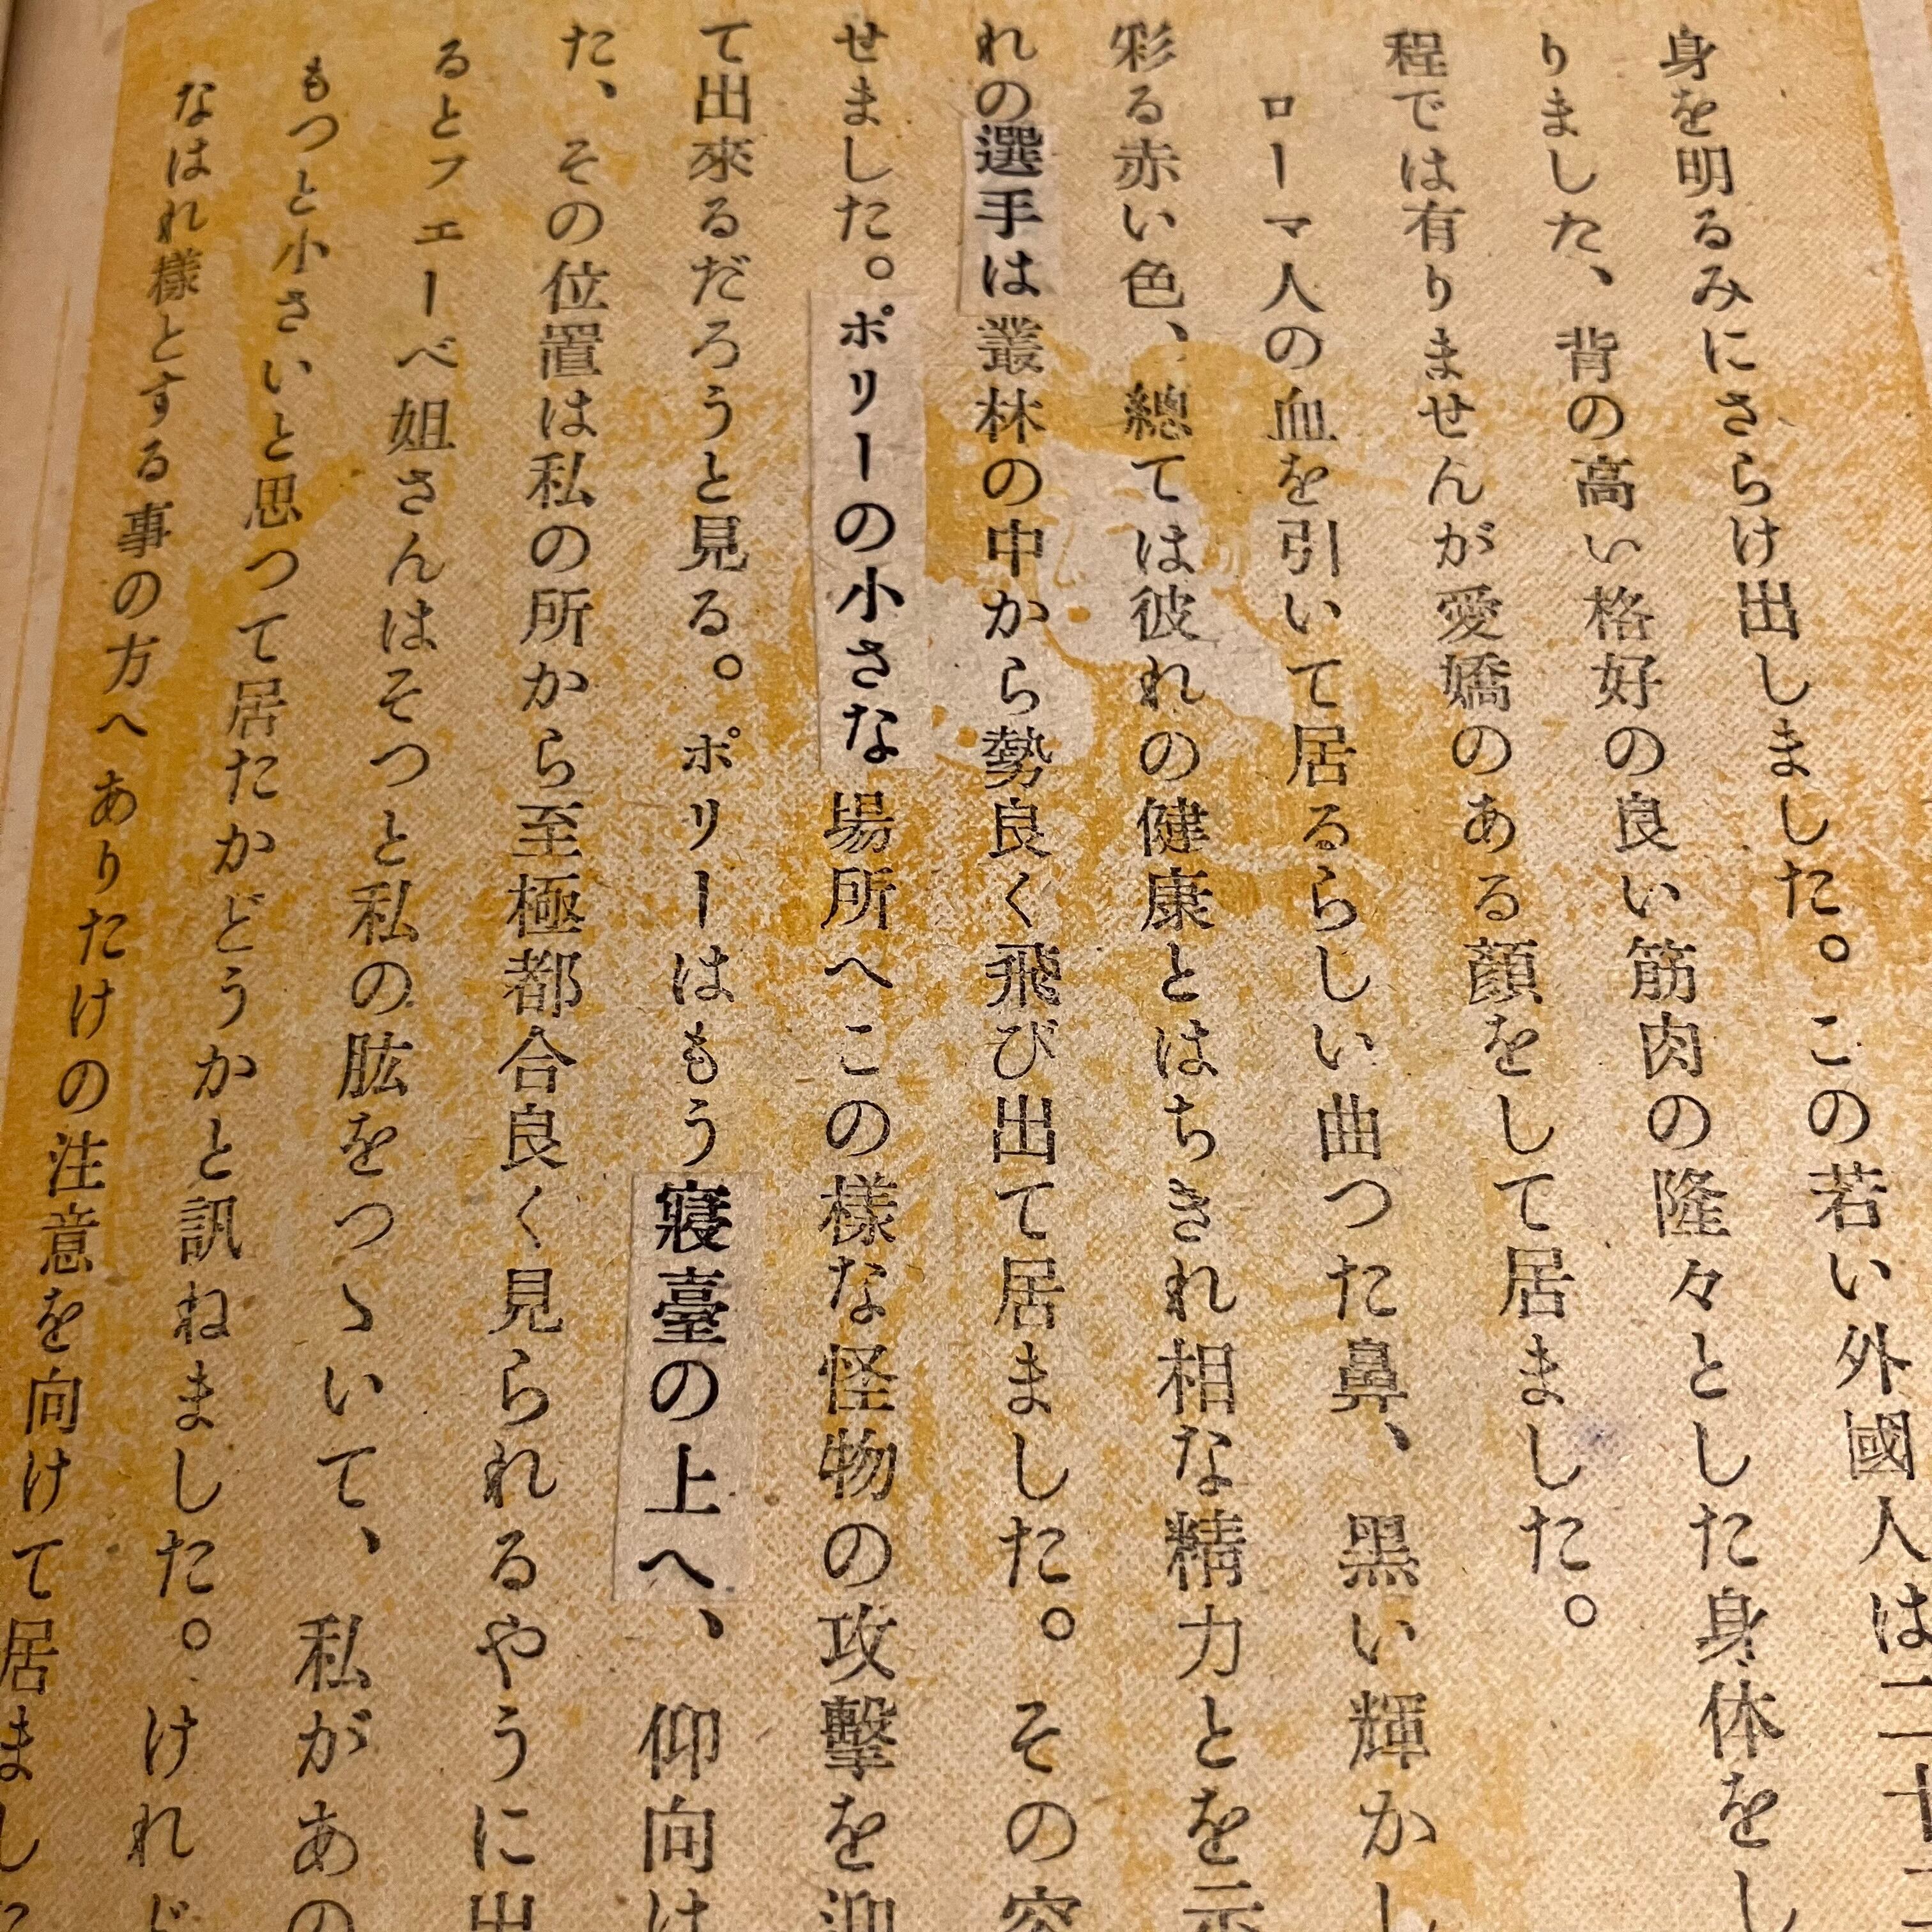 身を明るみにさらけ出しました。この若い外國人は二十
りました、背の高い格好の良い筋肉の隆々とした身体をし
程では有りませんが愛嬌のある顔をして居ました。
ローマ人の血を引いて居るらしい曲つた鼻、黒い輝かし
彩る赤い色、總ては彼れの健康とはちきれ相な精力とを示
れの選手は叢林の中から勢良く飛び出て居ました。その
せました。ポリーの小さな場所へこの様な怪物の攻擊を迎
て出來るだろうと見る。ポリーはもう寢臺の上へ、仰向け
た、その位置は私の所から至極都合良く見られるやうに出
るとフエーベ姐さんはそつと私の肱をつゝいて、私があの
もつと小さいと思つて居たかどうかと訊ねました。けれど
なはれ樣とする事の方へありたけの注意を向けて居ました